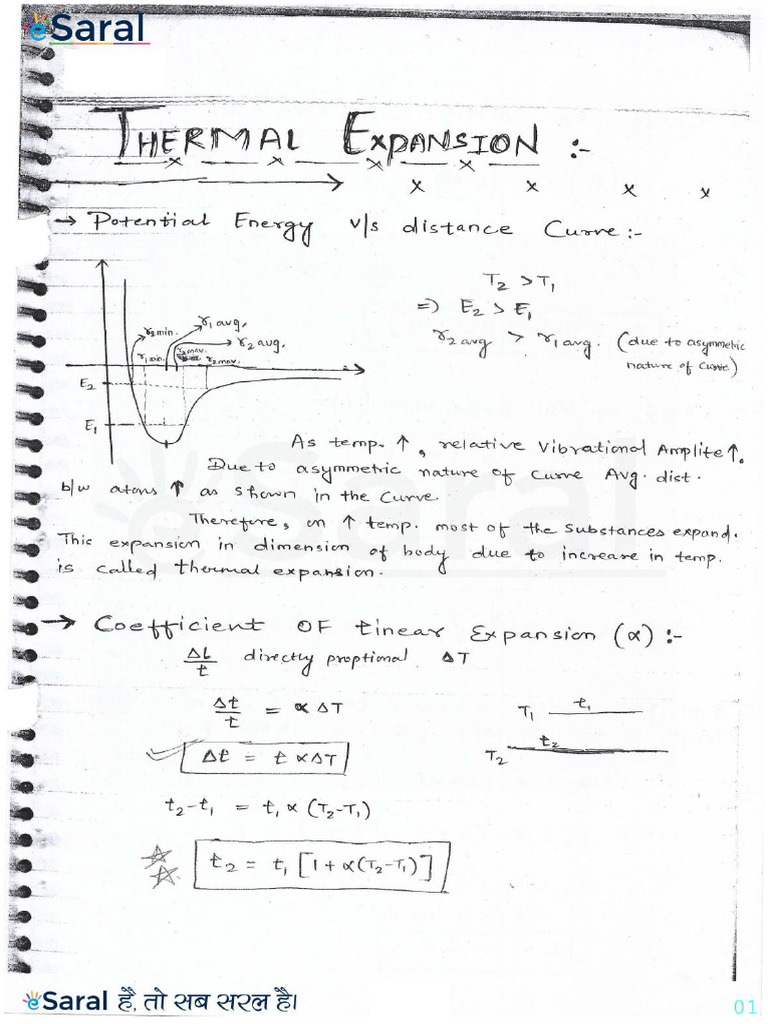 eSaral
THERMAL EXPANSION :-
→ Potential Energy v/s distance Curve :-
T₂ > T₁
⇒ E₂ > E₁
r₂ avg > r₁ avg. (due to asymmetric
nature of Curve)
r₁ avg.
r₂ min.
r₂ avg.
r₁ min.
r₂ max.
E₂
E₁
As temp. ↑, relative Vibrational Amplite ↑.
Due to asymmetric nature of Curve Avg. dist.
b/w atoms ↑ as shown in the Curve.
Therefore, on ↑ temp. most of the Substances expand.
This expansion in dimension of body due to increase in temp.
is called thermal expansion.
→ Coefficient OF Linear Expansion (α) :-
ΔL/t directly proptional ΔT
Δt/t = α ΔT
T₁ t₁
Δt = t α ΔT
T₂ t₂
t₂-t₁ = t₁ α (T₂-T₁)
t₂ = t₁ [1 + α(T₂-T₁)]
eSaral है, तो सब सरल है।
01